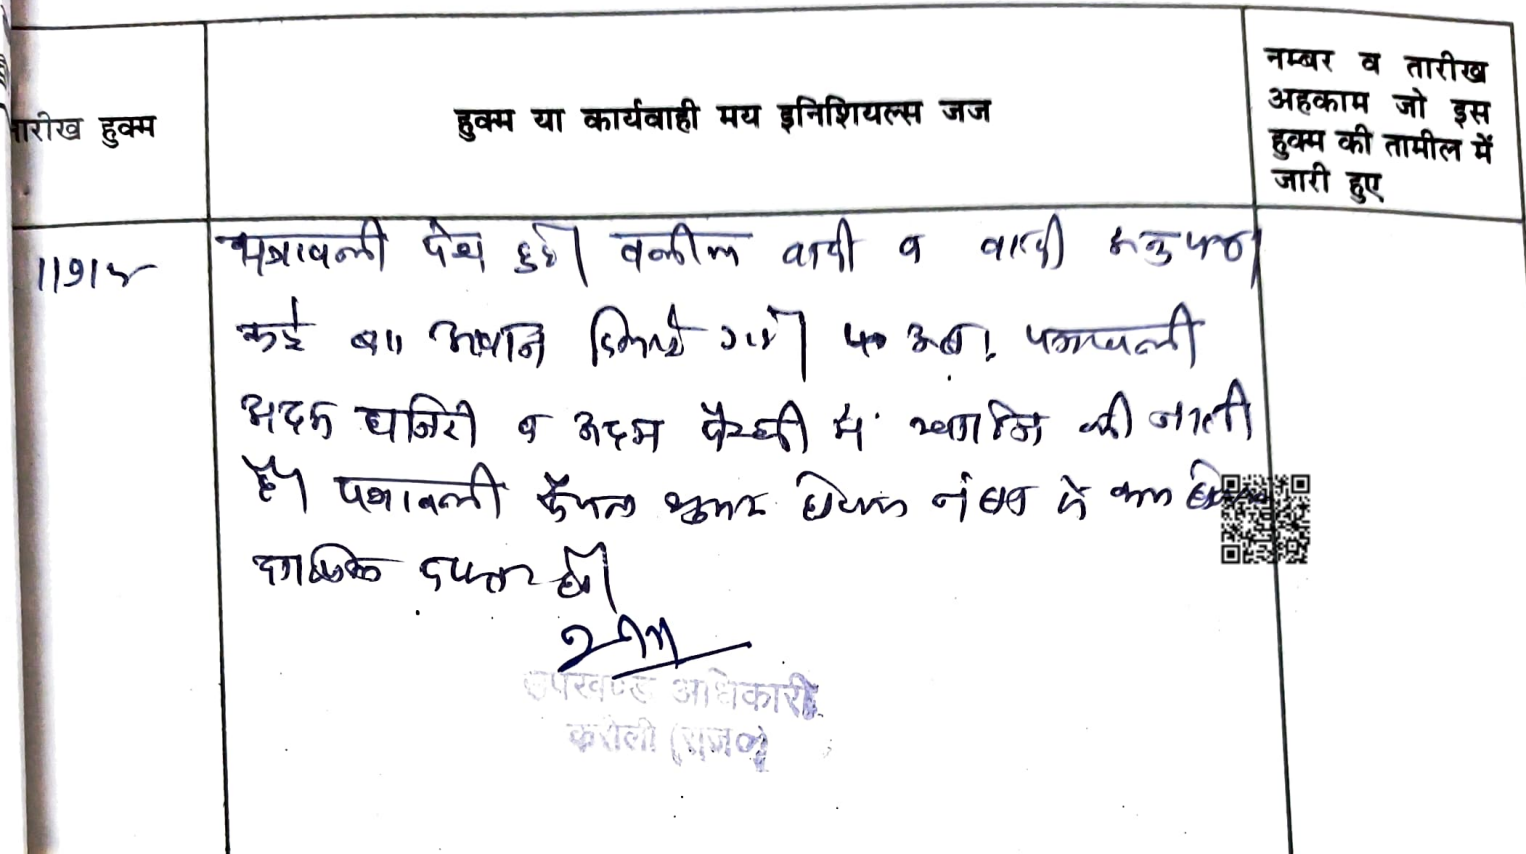 तारीख हुक्म
हुक्म या कार्यवाही मय इनिशियल्स जज
नम्बर व तारीख
अहकाम जो इस
हुक्म की तामील में
जारी हुए
पत्रावली पेश हुई। वकील वादी व वादी अनुप०।
कई बार आवाज दिलाई गई। पत्रावली
अदम हाजिरी व अदम पैरवी में खारिज की जाती
है। पत्रावली फैसल शुमार होकर नंबर से कम
दाखिल दफ्तर हो।
उपखण्ड अधिकारी
करौली (राज०)